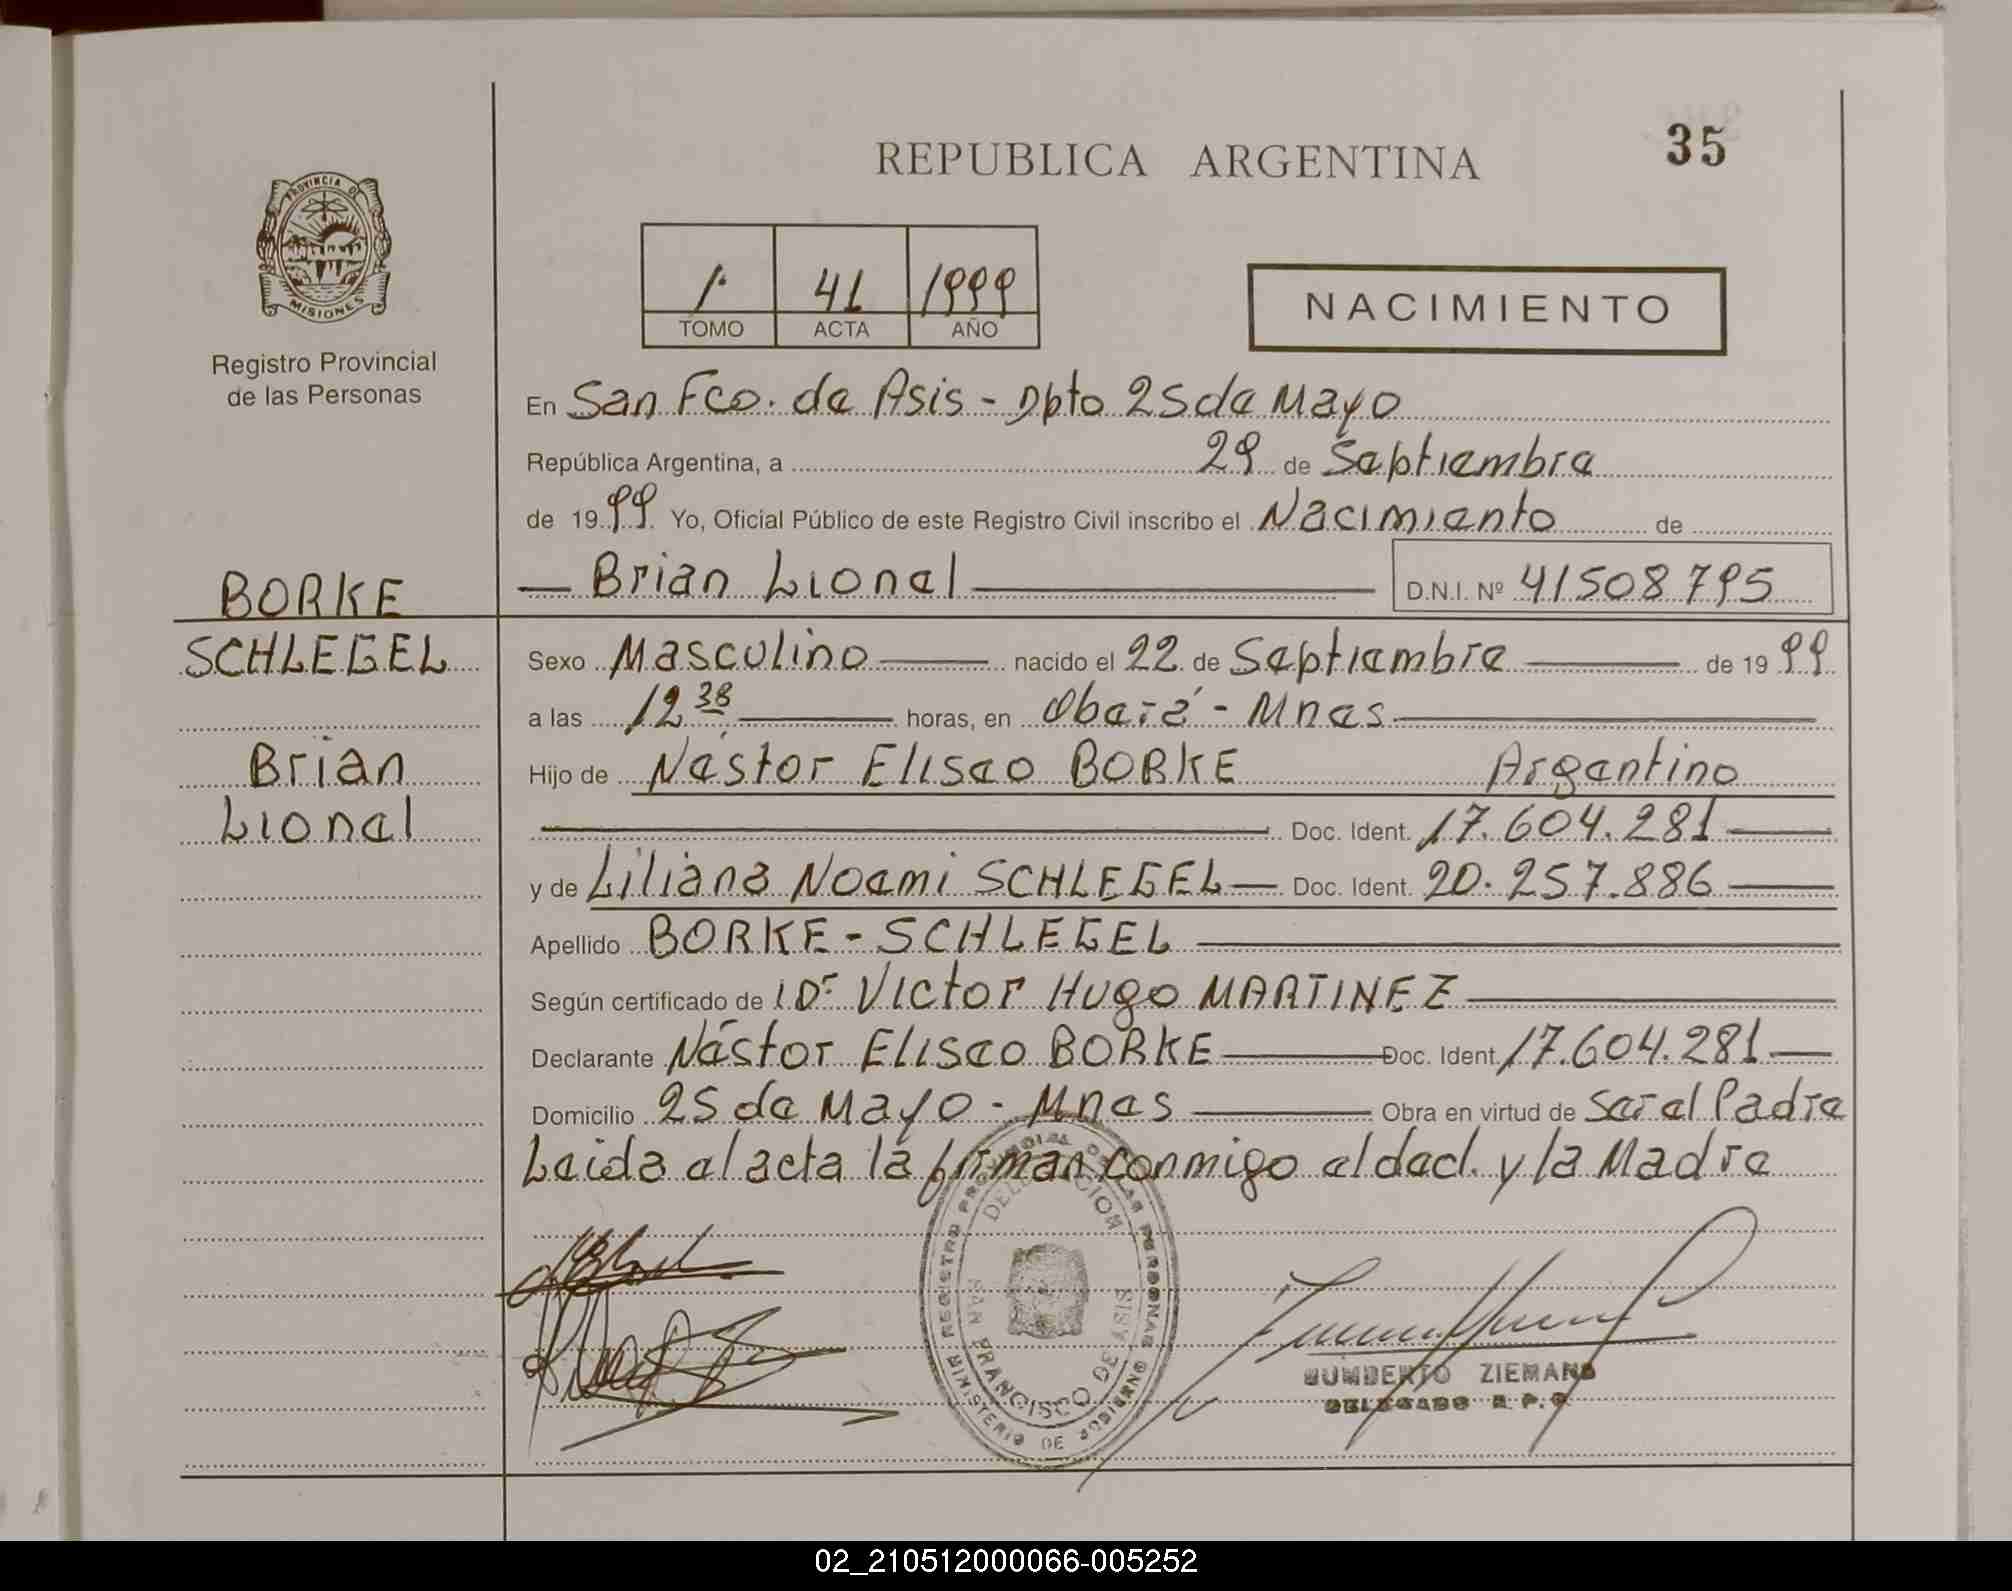 35
REPUBLICA ARGENTINA
PROVINCIA DE
MISIONES
Registro Provincial
de las Personas
1º 41 1999
TOMO ACTA AÑO
NACIMIENTO
En San Fco. de Asis - Dpto 25 de Mayo
República Argentina, a 29 de Septiembre
de 1999 Yo, Oficial Público de este Registro Civil inscribo el Nacimiento de
Brian Lionel D.N.I. Nº 41508795
BORKE
SCHLEGEL
Brian
Lionel
Sexo Masculino nacido el 22 de Septiembre de 1999
a las 12 38 horas, en Oberá - Mnes
Hijo de Néstor Eliseo BORKE Argentino
Doc. Ident. 17.604.281
y de Liliana Noemi SCHLEGEL Doc. Ident. 20.257.886
Apellido BORKE - SCHLEGEL
Según certificado de Dr Victor Hugo MARTINEZ
Declarante Néstor Eliseo BORKE Doc. Ident. 17.604.281
Domicilio 25 de Mayo - Mnes Obra en virtud de Ser el Padre
Leida el acta la firman conmigo el decl. y la Madre
MINISTERIO DE GOBIERNO REGISTRO PROVINCIAL DE LAS PERSONAS
DELEGACION
SAN FRANCISCO DE ASIS
HUMBERTO ZIEMANN
DELEGADO R.P.P.
02_210512000066-005252